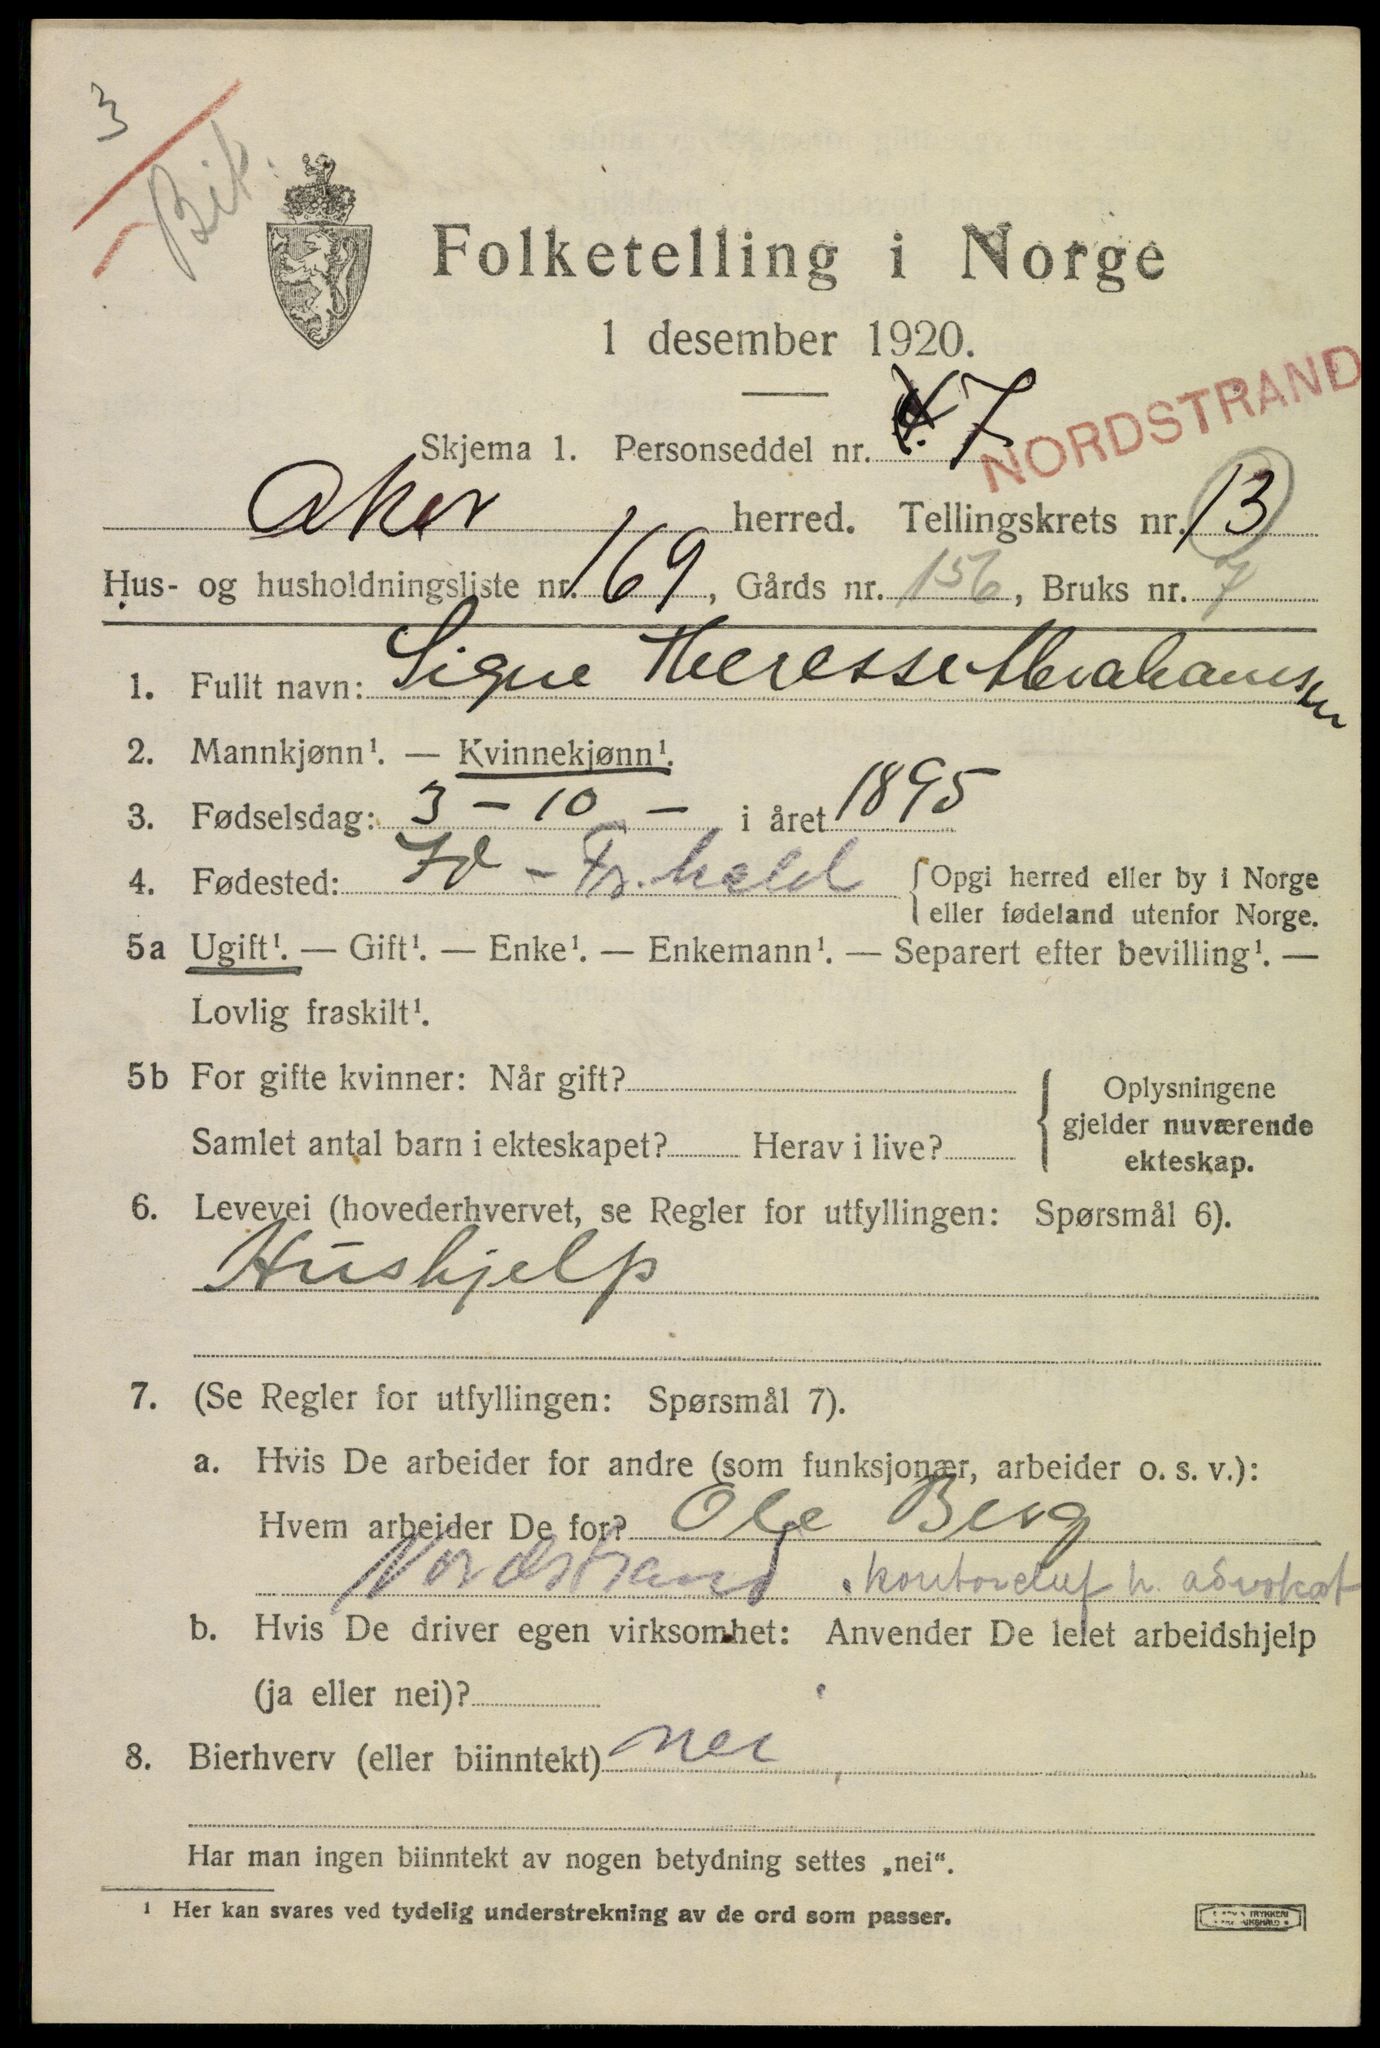 3
Bik.
Folketelling i Norge
1 desember 1920.
NORDSTRAND
Skjema 1. Personseddel nr. 7
Aker herred. Tellingskrets nr. 13
Hus- og husholdningsliste nr. 169, Gårds nr. 156, Bruks nr. 7
1. Fullt navn: Signe Theresse Abrahamsen
2. Mannkjønn¹. — Kvinnekjønn¹.
3. Fødselsdag: 3 - 10 - i året 1895
4. Fødested: Id - Fr.hald {Opgi herred eller by i Norge
eller fødeland utenfor Norge.
5a Ugift¹. — Gift¹. — Enke¹. — Enkemann¹. — Separert efter bevilling¹. —
Lovlig fraskilt¹.
5b For gifte kvinner: Når gift?
Samlet antal barn i ekteskapet? Herav i live?
Oplysningene
gjelder nuværende
ekteskap.
6. Levevei (hovederhvervet, se Regler for utfyllingen: Spørsmål 6).
Hushjelp
7. (Se Regler for utfyllingen: Spørsmål 7).
a. Hvis De arbeider for andre (som funksjonær, arbeider o. s. v.):
Hvem arbeider De for? Ole Berg
Nordstrand . kontorchef h. advokat
b. Hvis De driver egen virksomhet: Anvender De leiet arbeidshjelp
(ja eller nei)?
8. Bierhverv (eller biinntekt) nei
Har man ingen biinntekt av nogen betydning settes „nei“.
¹ Her kan svares ved tydelig understrekning av de ord som passer.